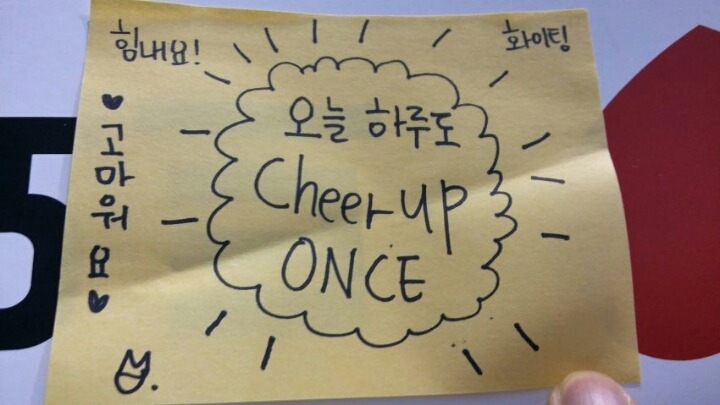 힘내요!
화이팅
오늘 하루도
Cheer up
ONCE
고마워요
5